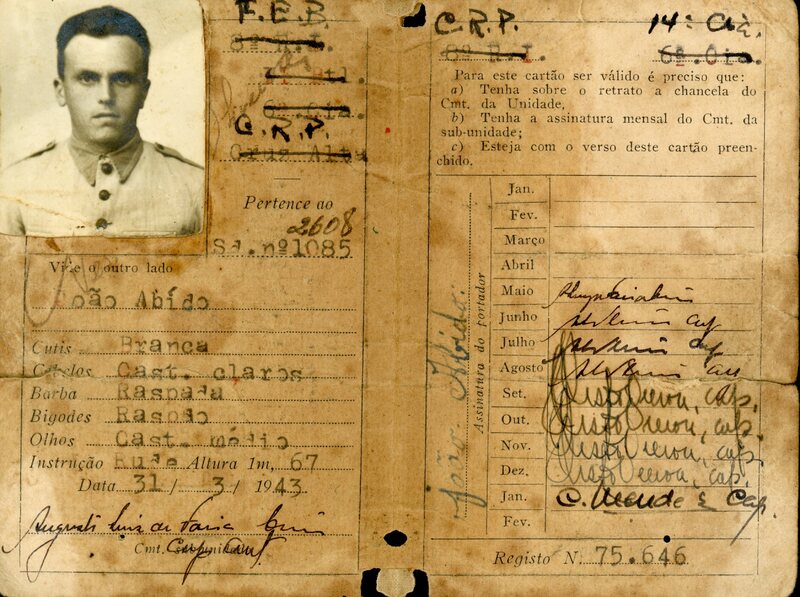 F.E.B.
6º R.I.
6ª Cia.
C.R.P.
Cruz Alta
Pertence ao
2608
Sd. nº1085
Vide o outro lado
João Abído
Cutis Branca
Cabelos Cast. claros
Barba Raspada
Bigodes Raspado
Olhos Cast. médio
Instrução Rude Altura 1m, 67
Data 31 / 3 / 1943
Cmt.
C.R.P. 14ª Cia.
6º R.I. 6ª Cia.
Para este cartão ser válido é preciso que:
a) Tenha sobre o retrato a chancela do
Cmt. da Unidade,
b) Tenha a assinatura mensal do Cmt. da
sub-unidade;
c) Esteja com o verso deste cartão preen-
chido.
João Abído.
Assinatura do portador
Jan.
Fev.
Março
Abril
Maio
Junho Cap
Julho Cap
Agosto
Set. cap.
Out. cap.
Nov. cap.
Dez. cap.
Jan. Cap.
Fev.
Registo N. 75.646